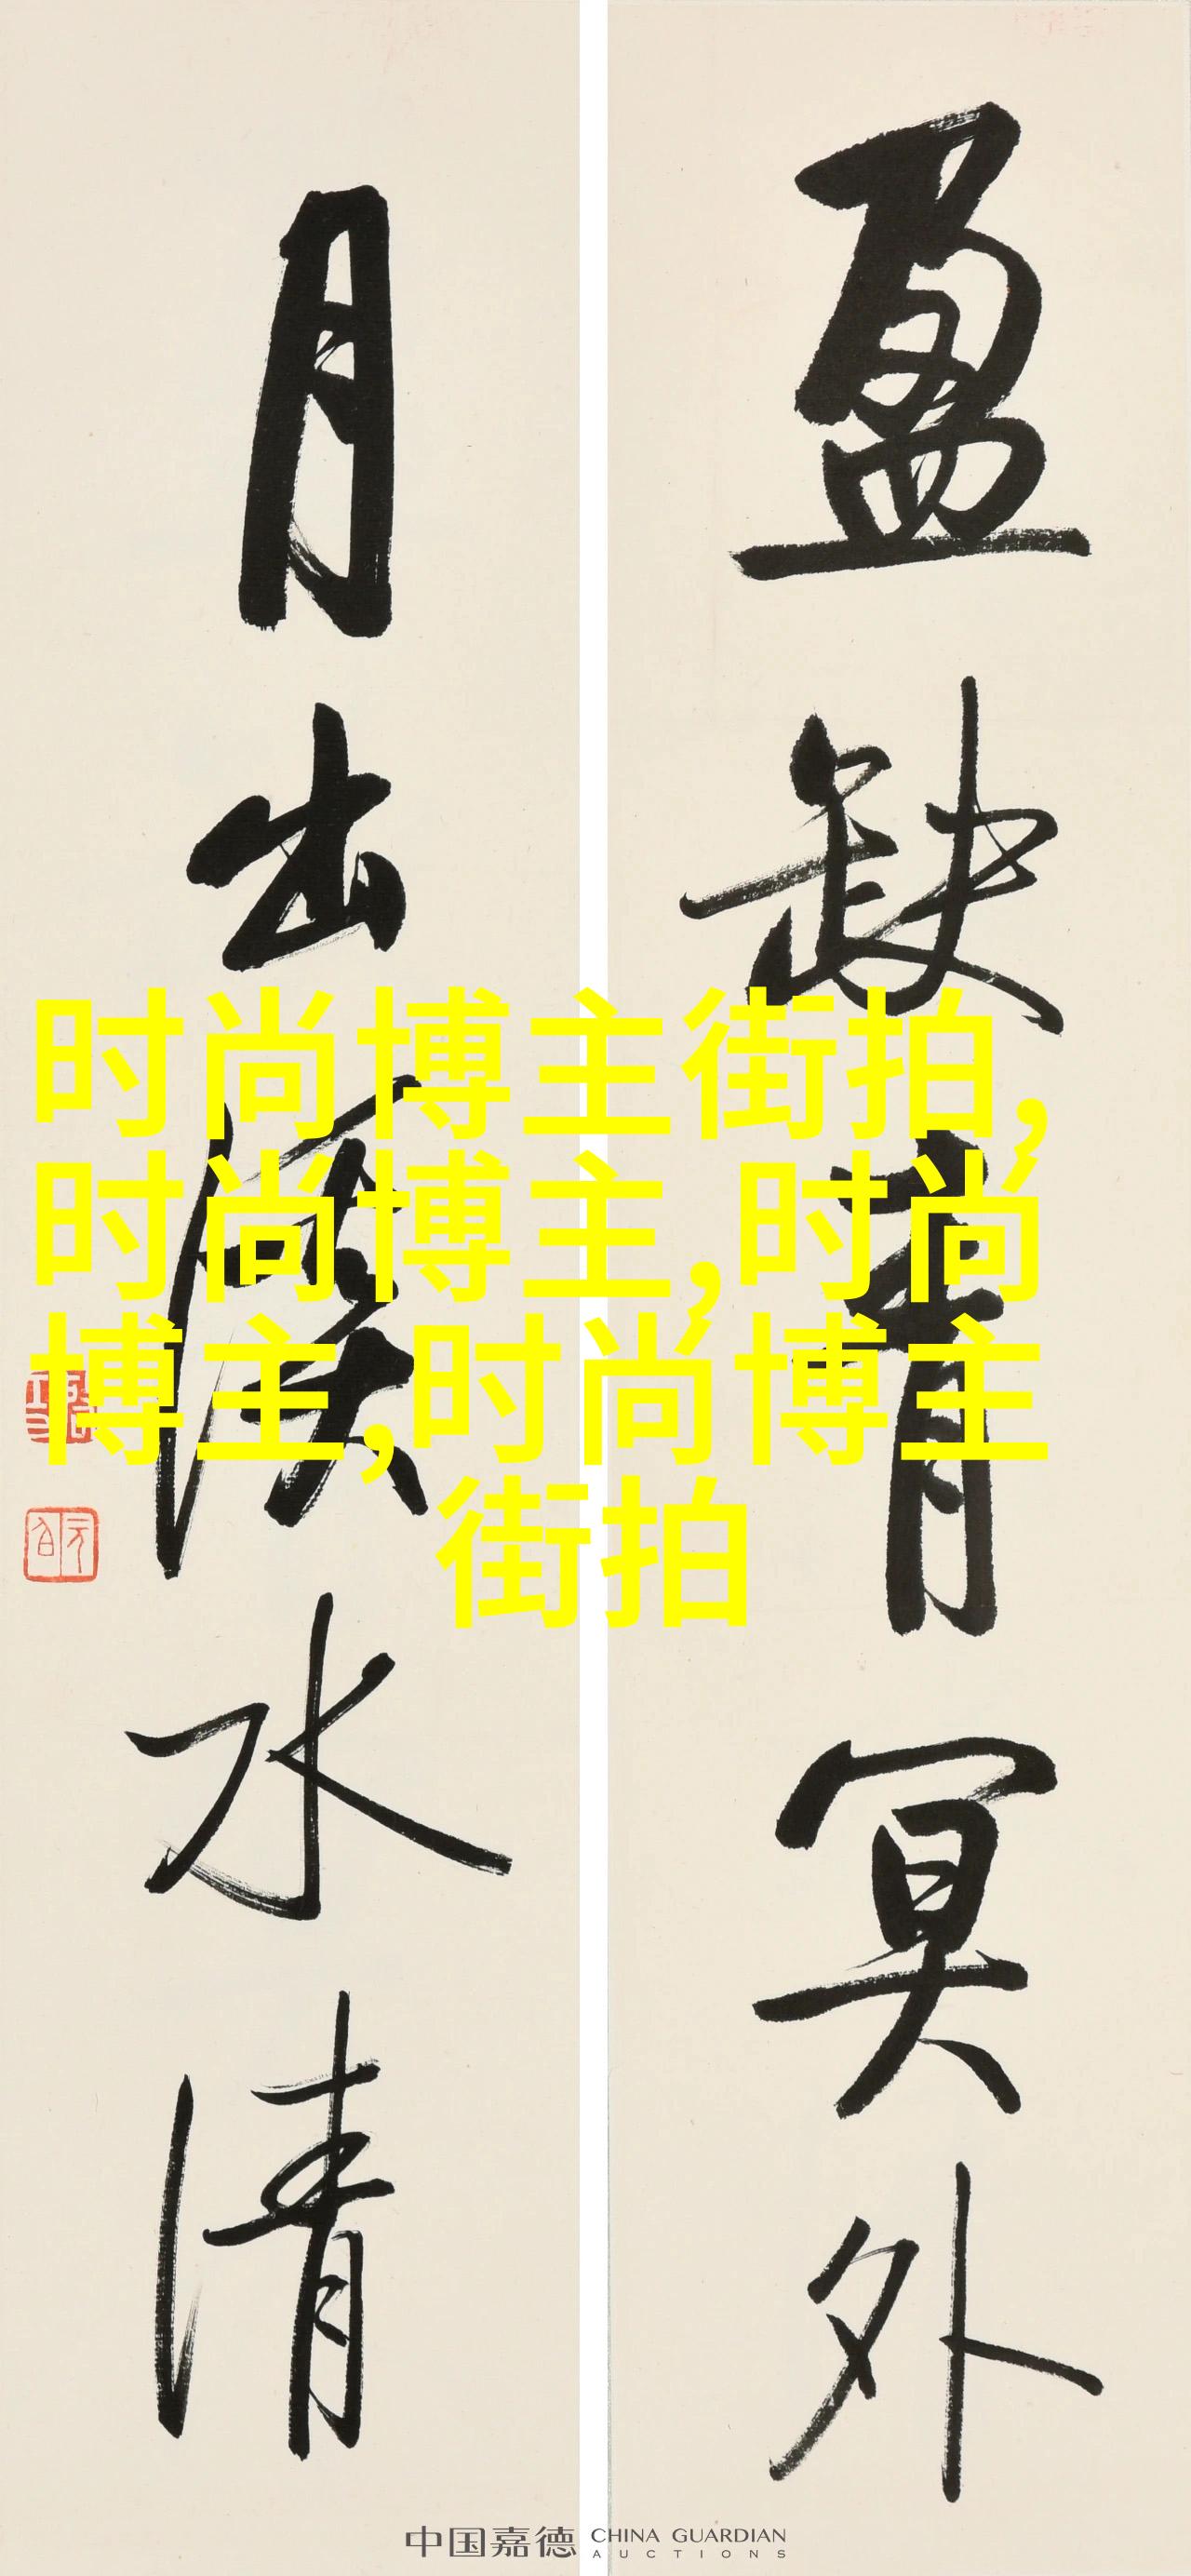 盈缺青冥外
月出水清
元白
时尚博主街拍,
时尚博主,时尚
博主,时尚博主
街拍
中国嘉德 CHINA GUARDIAN
AUCTIONS